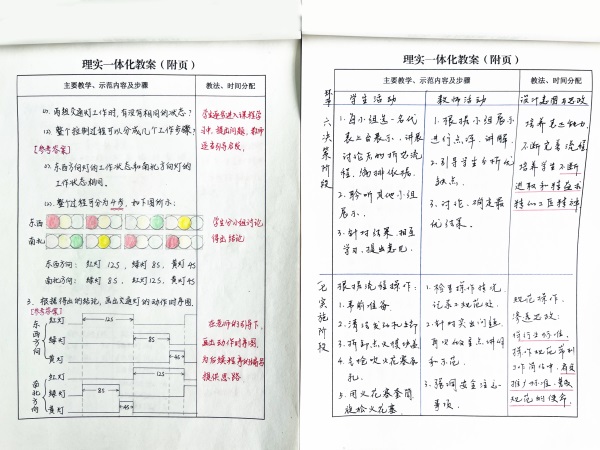 理实一体化教案(附页)
主要教学、示范内容及步骤
教法、时间分配
(1). 两组交通灯工作时,有没有相同的状态?
(2). 整个控制过程可以分成几个工作步骤?
[参考答案]
(1). 东西方向灯的工作状态和南北方向灯的
工作状态相同。
(2). 整个过程可分为四步,如下图所示:
东西
南北
东西方向: 红灯 12S, 绿灯 8S, 黄灯 4S
南北方向: 绿灯 8S, 红灯 12S, 黄灯 4S
3. 根据得出的结论,画出交通灯的动作时序图。
[参考答案]
东西方向
红灯
12S
绿灯
8S
黄灯
4S
南北方向
红灯
12S
绿灯
8S
黄灯
4S
学生分小组讨论
得出结论
在老师的引导下,
画出动作时序图,
为后续程序的编写
提供思路
理实一体化教案(附页)
主要教学、示范内容及步骤
教法、时间分配
环节
学生活动
教师活动
设计意图与思政
六决策阶段
1. 每小组选一名代
表上台展示、讲展
讨论后的拆装流
程,编排依据。
2. 聆听其他小组
展示。
3. 针对结果,相互
学习,提出意见。
1. 根据小组展示
进行点评,讲解。
2. 引导学生分析优
缺点。
3. 讨论、确定最
优结果。
培养表达能力,
不断完善流程
培养学生不断
进取和精益求
精的工匠精神
七实施阶段
根据流程操作:
1. 事前准备
2. 清洁发动机上部
3. 拆卸点火模块
4. 去除吹火花塞灰
孔
5. 用火花塞套筒
旋松火花塞
1. 检查操作情况,
记录不规范处。
2. 针对突出问题,
再次的重点讲明
和示范。
3. 强调安全注意
事项。
规范操作,
渗透思政: